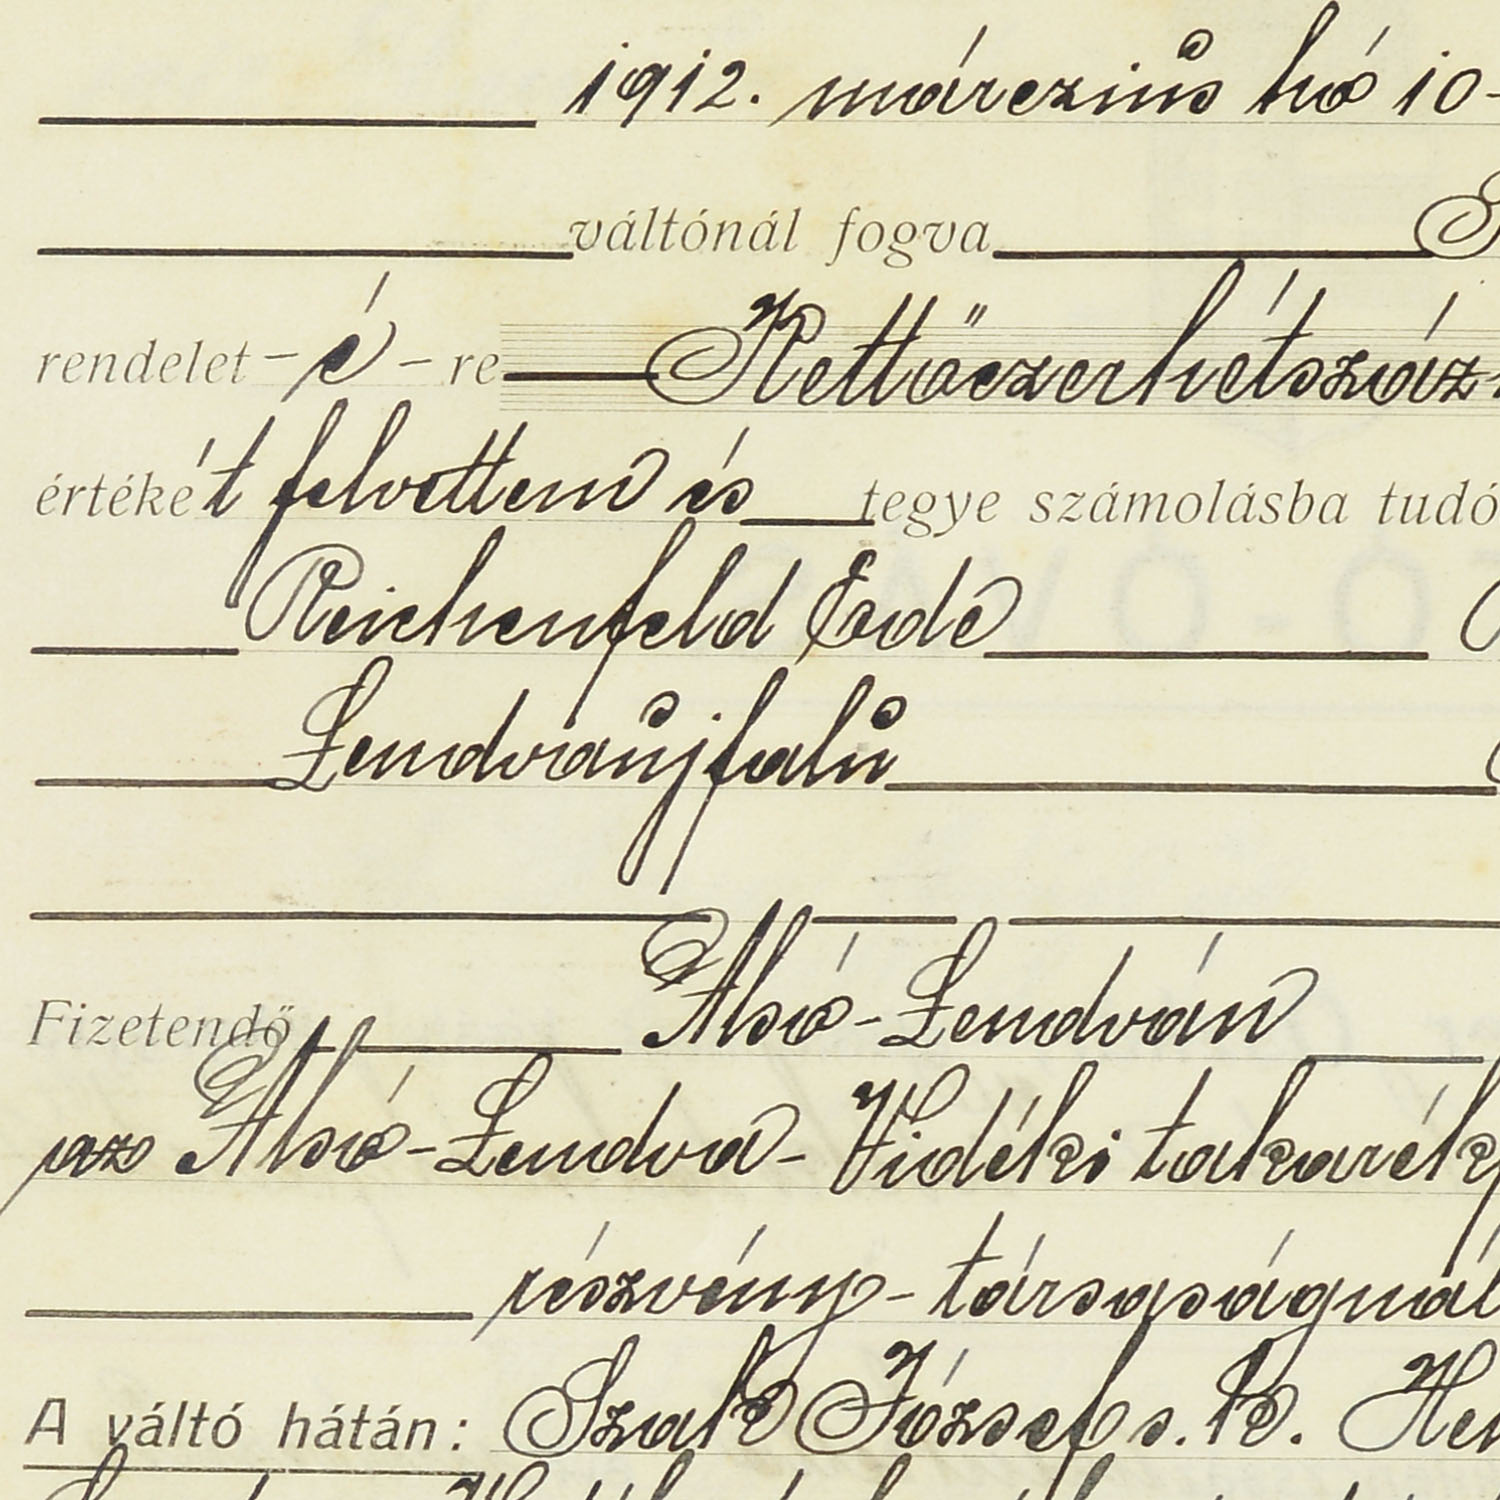 1912. márczius hó 10-
váltónál fogva
rendelet - é - re Kettőezerhétszáz
értékét felvettem és tegye számolásba tudó
Reichenfeld Ede
Lendvaújfalu
Fizetendő Alsó-Lendván
az Alsó-Lendva-Vidéki takarék
részvény-társaságnál
A váltó hátán: Szak József s. k. Hen